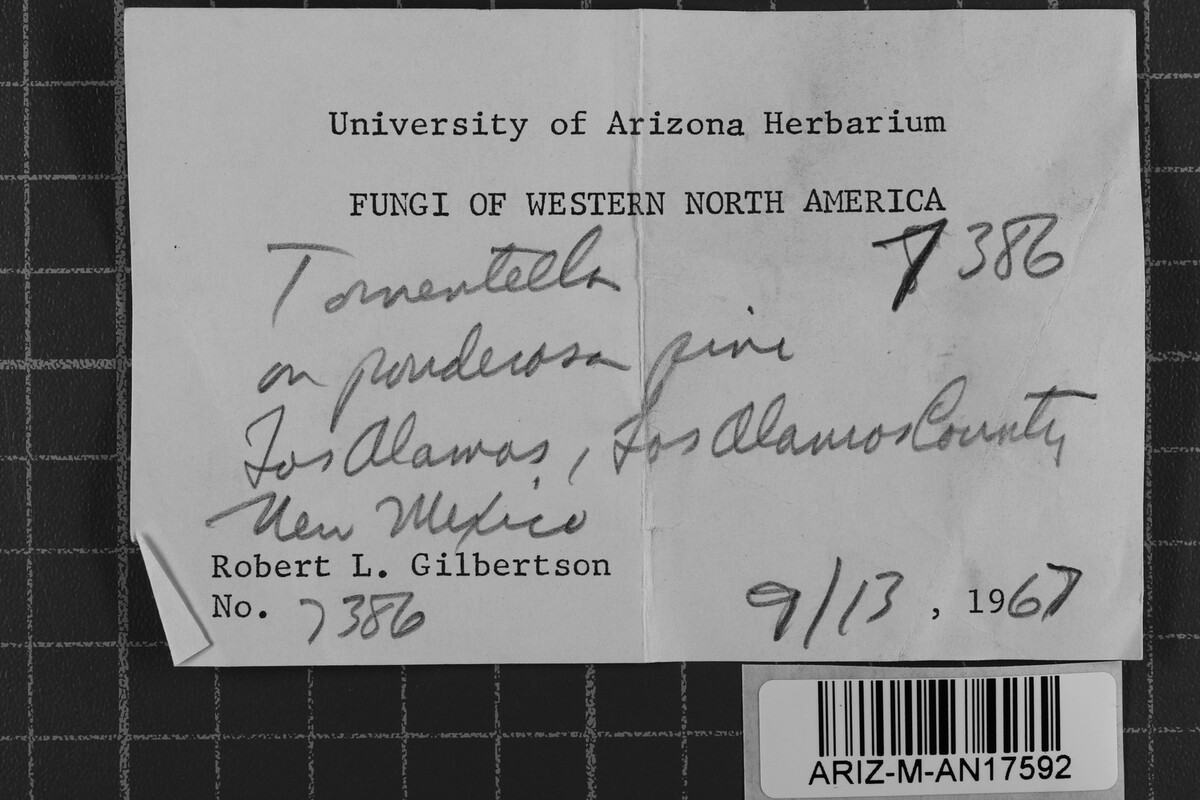 University of Arizona Herbarium
FUNGI OF WESTERN NORTH AMERICA
Tomentella 7386
on ponderosa pine
Los Alamos, Los Alamos County
New Mexico
Robert L. Gilbertson
No. 7386 9/13, 1967
ARIZ-M-AN17592